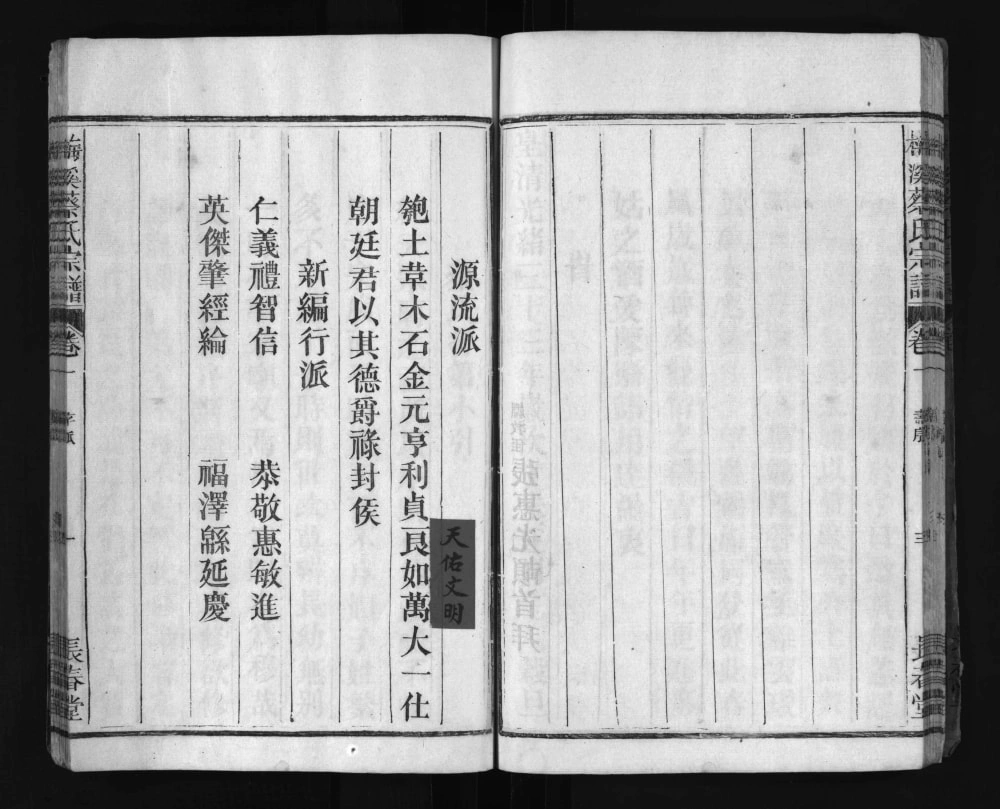 梅溪蔡氏宗譜
卷一
長春堂
源流派
匏土草木石金元亨利貞良如萬大一仕
天佑文明
朝廷君以其德爵祿封侯
新編行派
仁義禮智信 恭敬惠敏進
英傑肇經綸 福澤緜延慶
梅溪蔡氏宗譜
卷一
長春堂